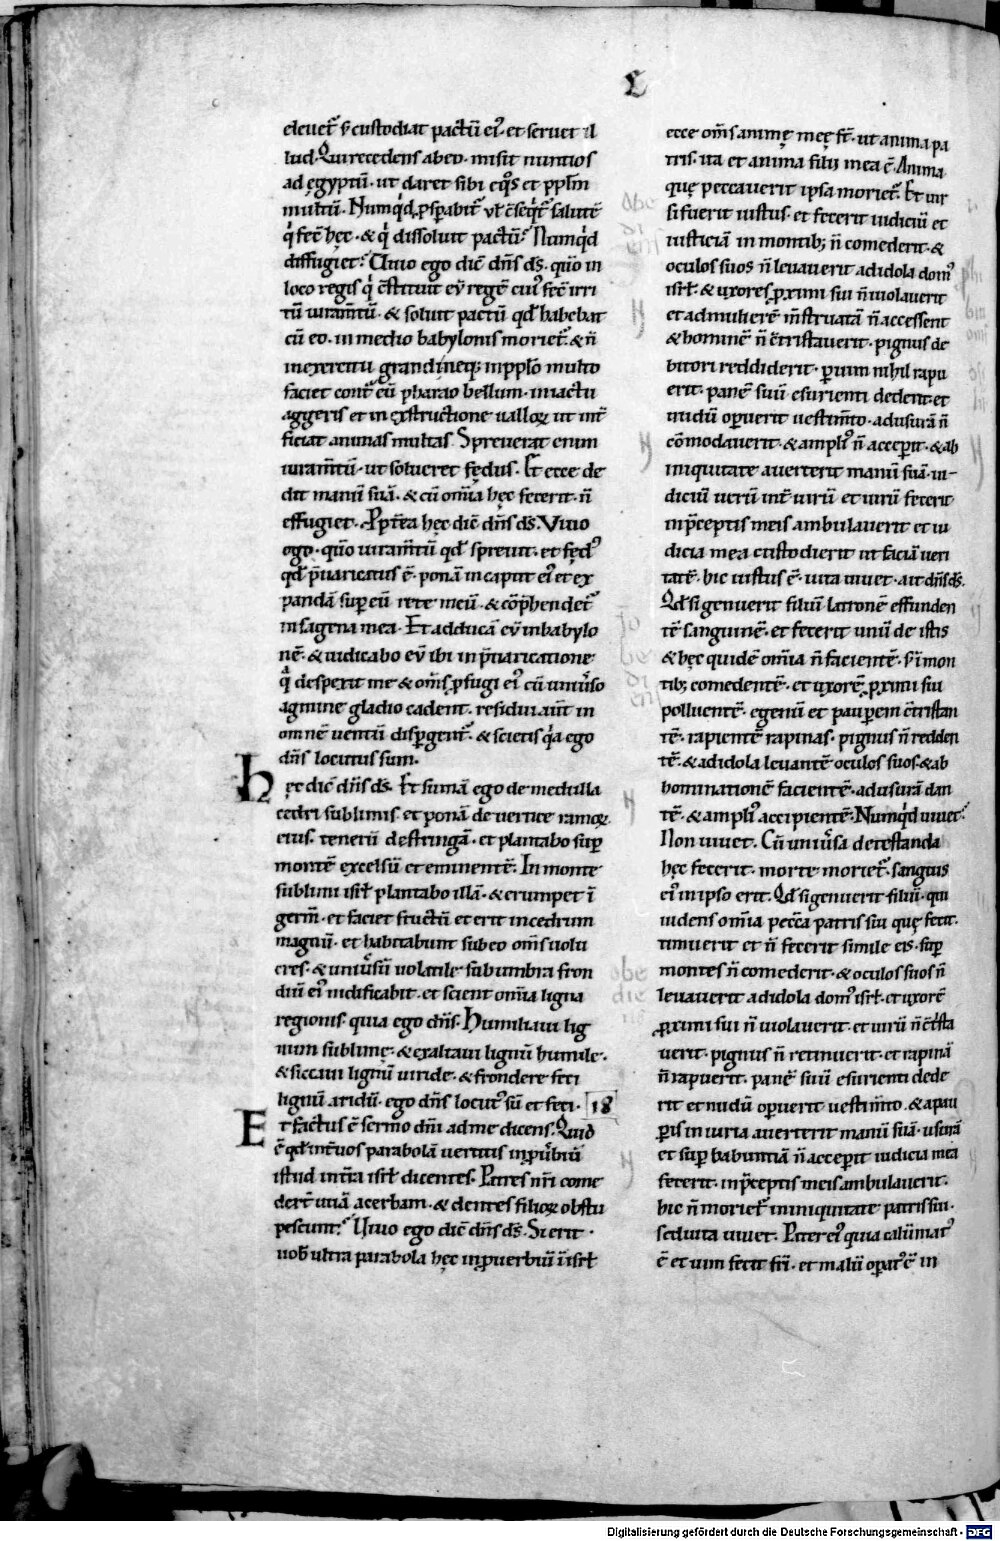 L
eleuet᷑ s; custodiat pactū ei᷒· et seruet il
lud· Qui recedens ab eo· misit nuntios
ad ęgyptū· ut daret sibi eq̊s et pplm̄
multū· Numq'd ꝓsꝑabit᷑ ut c̄seq̄t᷑ salutē
q' fec̄ hęc· & q' dissoluit pactū· Numq'd
diffugiet· Uiuo ego dic̄ dn̄s ds̄· qm̄o in
loco regis q' c̄stituit eū regē· cui᷒ fec̄ irri
tū iuram̄tū· & soluit pactū qd̄ habebat
cū eo· in medio babylonis moriet᷑· & ñ
in exercitu grandi neq; in pplo multo
faciet cont᷑ eū pharao bellum· in iactu
aggeris et in exstructione ualloꝝ ut int̄
ficiat animas multas· Spreuerat enim
iuram̄tū· ut solueret fędus· Et ecce de
dit manū suā· & cū om̄ia hęc fecerit· ñ
effugiet· Ppt̄ea hęc dic̄ dn̄s ds̄· Viuo
ego· qm̄o iuram̄tū qd̄ spreuit· et fęd᷒
qd̄ p̄uaricatus ē· ponā in caput ei᷒ et ex
pandā suꝑ eū rete meū· & cōp̄hendet᷑
in sagena mea· Et adducā eū in babylo
nē· & iudicabo eū ibi in p̄uaricatione
qᵃ despexit me & om̄s ꝓfugi ei᷒ cū uniu̾so
agmine gladio cadent· residui aut̄ in
omnē uentū disꝑgent᷑· & scietis q'a ego
dn̄s locutus sum·
Hęc dic̄ dn̄s ds̄· Et sumā ego de medulla
cedri sublimis· et ponā de uertice ramoꝝ
eius· tenerū destringā· et plantabo suꝑ
montē excelsū et eminentē· In monte
sublimi isrł plantabo illā· & erumpet ī
germ̄· et faciet fructū et erit in cedrum
magnū· et habitabunt sub eo om̄s uolu
cres· & uniu̾sū uolatile sub umbra fron
diū ei᷒ nidificabit· et scient om̄ia ligna
regionis· quia ego dn̄s· Humiliaui lig
num sublimę· & exaltaui lignū humile·
& siccaui lignū uiride· & frondere feci
lignū aridū· ego dn̄s locut᷒ sū et feci· 18
Et factus ē sermo dn̄i ad me dicens· Quid
ē qd̄ int̄ uos parabolā uertitis in ꝓu̾biū
istud in t̄ra isrł dicentes· Patres nr̄i come
der̄t uuā acerbam· & dentes filioꝝ obstu
pescunt· Uiuo ego dic̄ dn̄s ds̄· Si erit·
uob̄ ultra parabola hęc in ꝓuerbiū ī isrł
ecce om̄s animę meę st̄· ut anima pa
tris· ita et anima filii mea ē· Anima
quę peccauerit ipsa moriet᷑· Et uir
si fuerit iustus· et fecerit iudiciū et
iusticiā· in montib; ñ comederit· &
oculos suos ñ leuauerit ad idola dom᷒
isrł· & uxorē ꝓximi sui ñ uiolauerit
et ad mulierē m̄struatā ñ accesserit
& hominē ñ c̄tristauerit· pignus de
bitori reddiderit· ꝑ uim nihil rapu
erit· panē suū esurienti dederit· et
nudū oꝑuerit uestim̄to· ad usurā ñ
cōmodauerit· & ampli᷒ ñ acceꝑit· & ab
iniquitate auerterit manū suā· iu-
diciū uerū int̄ uirū et uirū fecerit
in p̄ceptis meis ambulauerit et iu
dicia mea custodierit ut faciā ueri
tatē· hic iustus ē· uita uiuet· ait dn̄s ds̄·
Qd̄ si genuerit filiū latronē effunden
tē sanguinē· et fecerit unū de istis
& hęc quidē om̄ia ñ facientē· s; ī mon
tib; comedentē· et uxorē ꝓximi sui
polluentē· egenū et pauꝑem c̄tristan
tē· rapientē rapinas· pignus ñ redden
tē· & ad idola leuantē oculos suos· & ab
hominationē facientē· ad usurā dan
tē· & ampli᷒ accipientē· Numq'd uiuet·
Non uiuet· Cū uniu̾sa detestanda
hęc fecerit· morte moriet᷑· sanguis
ei᷒ in ipso erit· Qd̄ si genuerit filiū· qui
uidens om̄ia pecc̄a patris sui quę fecit·
timuerit et ñ fecerit simile eis· suꝑ
montes ñ comederit· & oculos suos ñ
leuauerit ad idola dom᷒ isrł· et uxorē
ꝓximi sui ñ uiolauerit· et uirū ñ c̄trista
uerit· pignus ñ retinuerit· et rapinā
ñ rapuerit· panē suū esurienti dede
rit et nudū oꝑuerit uestim̄to· & a pau
ꝑis iniuria auerterit manū suā· usurā
et suꝑhabuntiā ñ acceꝑit iudicia mea
fecerit· in p̄ceptis meis ambulauerit·
hic ñ moriet᷑ in iniquitate patris sui·
sed uita uiuet· Pater ei᷒ quia calūniat᷒
ē et uim fecit fr̄i· et malū oꝑat᷒ ē in
Digitalisierung gefördert durch die Deutsche Forschungsgemeinschaft - DFG